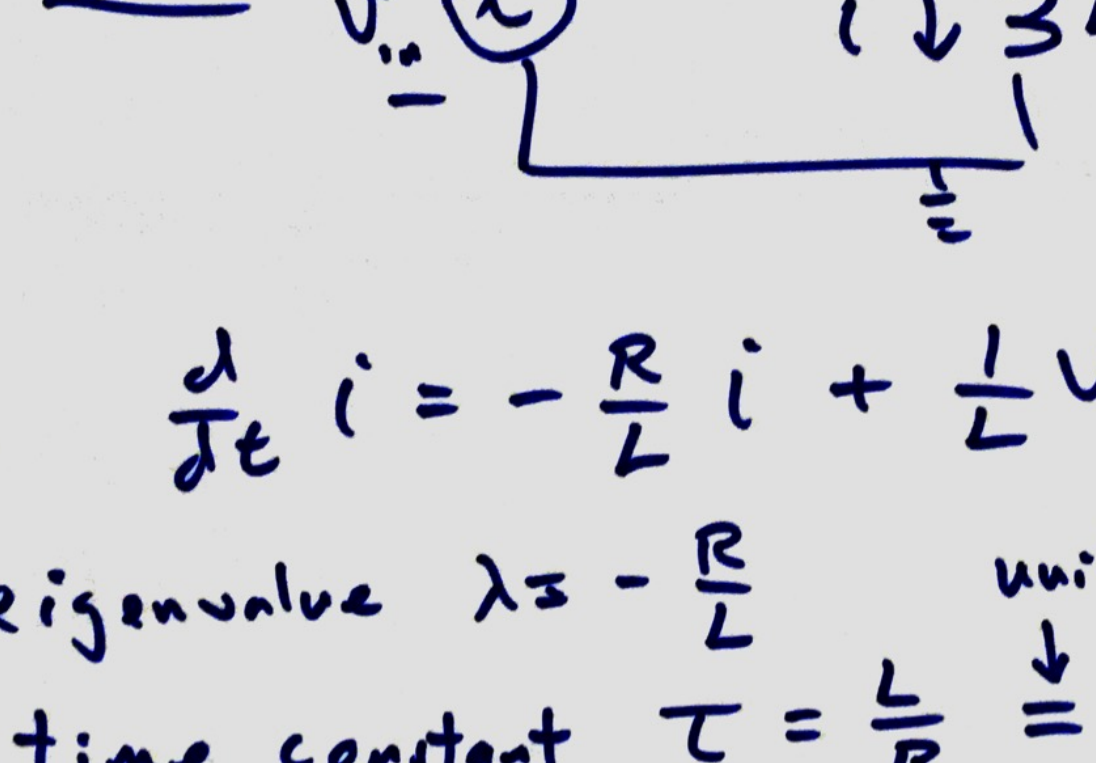 V in i ↓
−
d/dt i = - R/L i + 1/L
eigenvalue λ = - R/L
time constant τ = L/R =